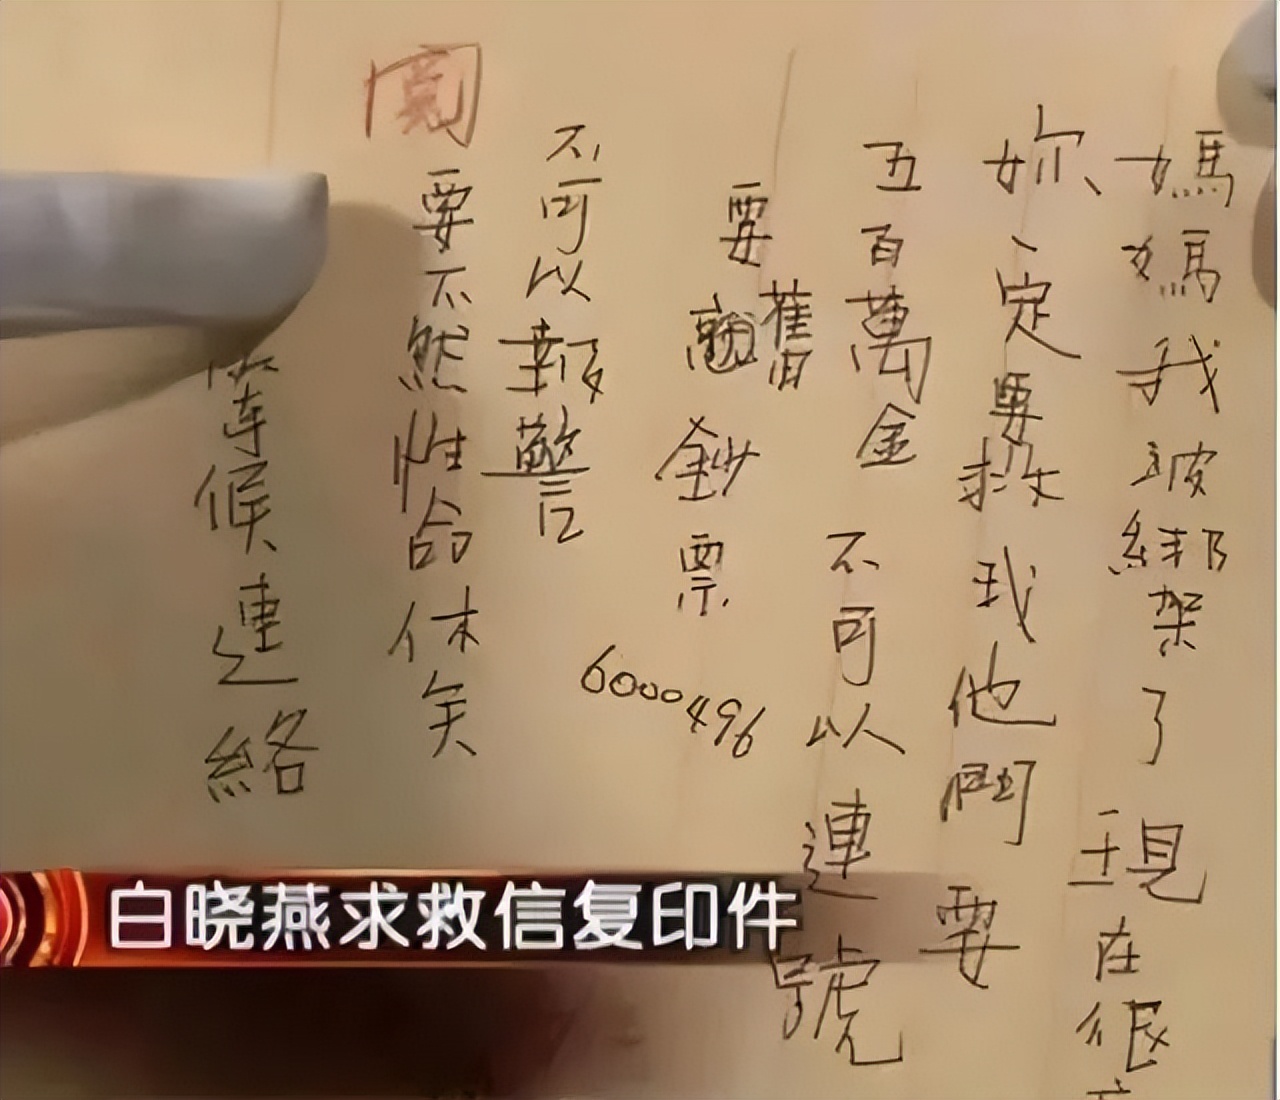 媽媽我被綁架了現在很
妳一定要救我他們要
五百萬金不可以連號
要舊鈔票
6000496
不可以報警
要不然性命休矣
等候連絡
白晓燕求救信复印件